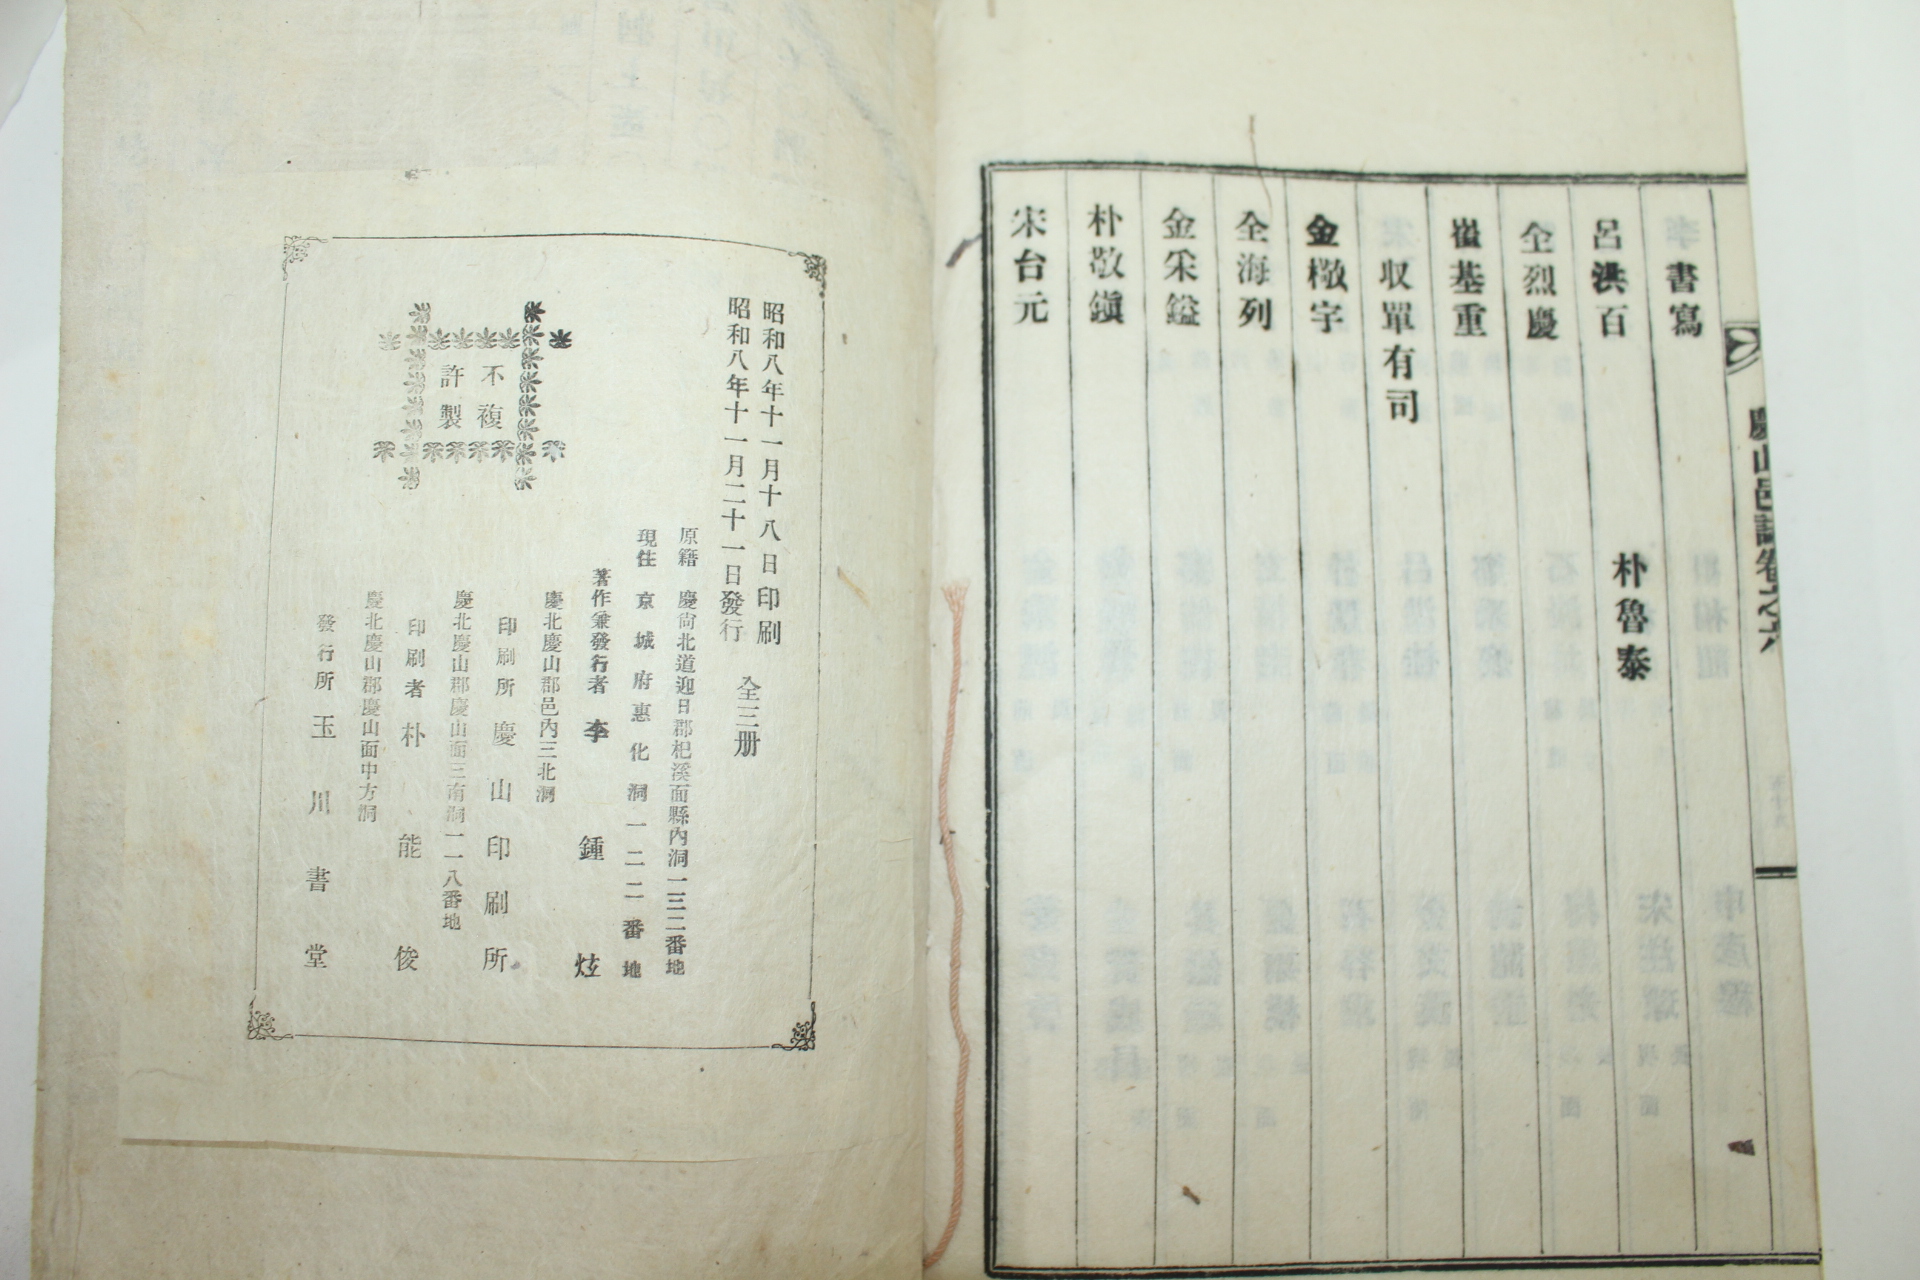 慶山邑誌卷之六
書寫
呂洪百
朴魯泰
仝烈慶
崔基重
収單有司
金檄宇
全海列
金采鎰
朴敬鎭
宋台元
昭和八年十一月十八日印刷
昭和八年十一月二十一日發行
全三册
不複
許製
原籍 慶尙北道迎日郡杞溪面縣內洞一三二番地
現住 京城府惠化洞一二二番地
著作兼發行者 李鍾炫
慶北慶山郡邑內三北洞
印刷所 慶山印刷所
慶北慶山郡慶山面三南洞一一八番地
印刷者 朴能俊
慶北慶山郡慶山面中方洞
發行所 玉川書堂